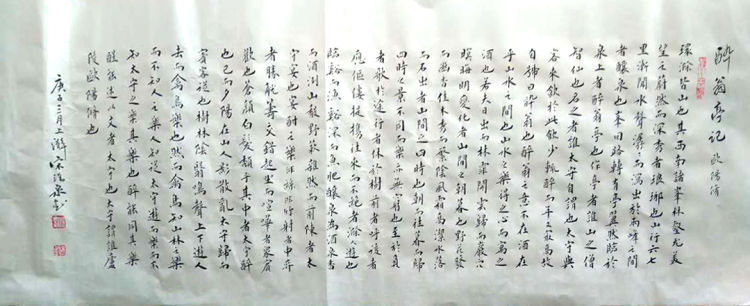 醉翁亭記 歐陽脩
環滁皆山也其西南諸峯林壑尤美
望之蔚然而深秀者琅琊也山行六七
里漸聞水聲潺潺而瀉出於兩峰之間
者釀泉也峯回路轉有亭翼然臨於
泉上者醉翁亭也作亭者誰山之僧
智仙也名之者誰太守自謂也太守與
客來飲於此飲少輒醉而年又最高故
自號曰醉翁也醉翁之意不在酒在
乎山水之間也山水之樂得之心而寓之
酒也若夫日出而林霏開雲歸而巖穴
暝晦明變化者山間之朝暮也野芳發
而幽香佳木秀而繁陰風霜高潔水落
而石出者山間之四時也朝而往暮而歸
四時之景不同而樂亦無窮也至於負
者歌於途行者休於樹前者呼後者
應傴僂提攜往來而不絕者滁人遊也
臨谿而漁谿深而魚肥釀泉為酒泉香
而酒洌山殽野蔌雜然而前陳者太
守宴也宴酣之樂非絲非竹射者中弈
者勝觥籌交錯起坐而諠譁者衆賓
歡也蒼顏白髮頹乎其中者太守醉
也已而夕陽在山人影散亂太守歸而
賓客從也樹林陰翳鳴聲上下遊人
去而禽鳥樂也然而禽鳥知山林之樂
而不知人之樂人知從太守遊而樂而不
知太守之樂其樂也醉能同其樂
醒能述以文者太守也太守謂誰廬
陵歐陽脩也
庚子三月上澣宋泉書